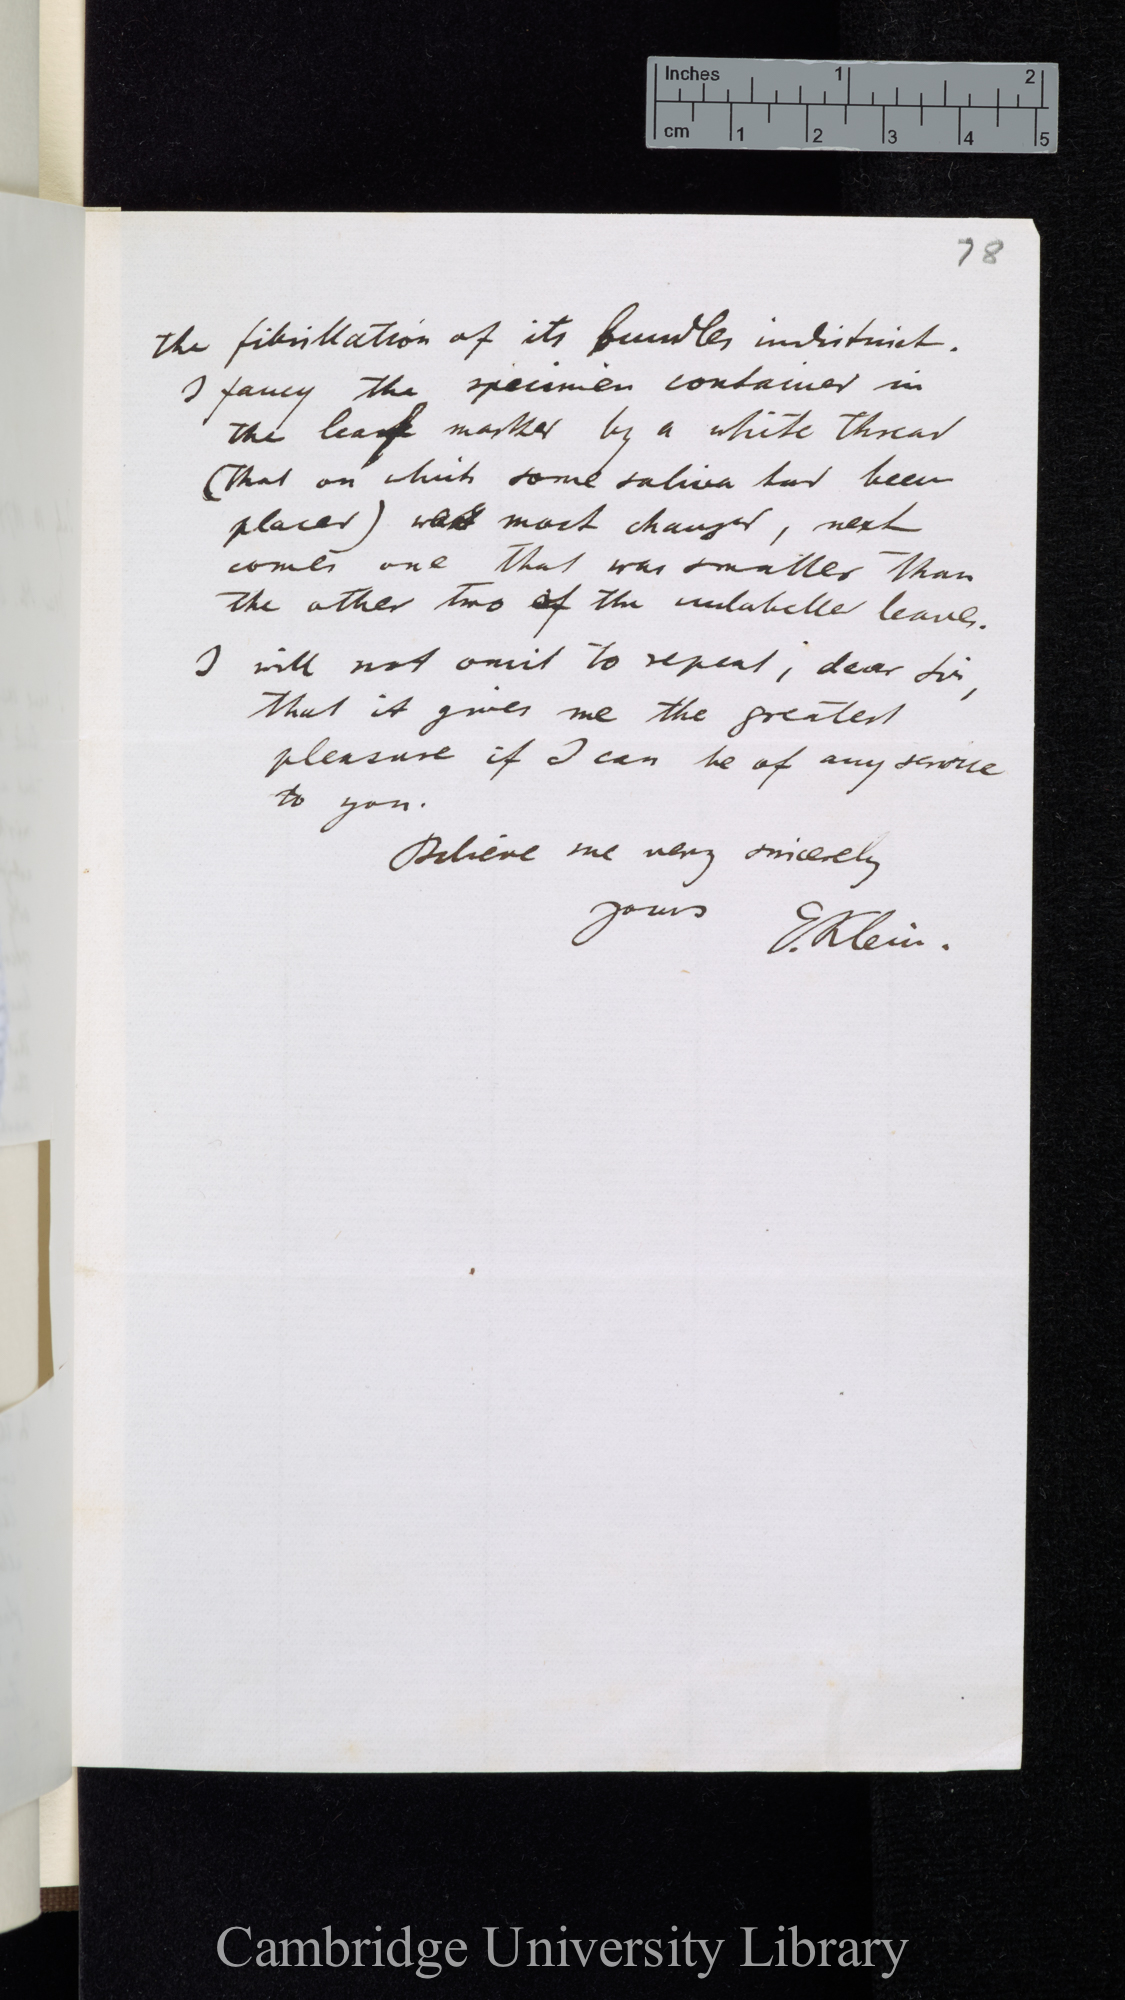 Inches 1 2
cm 1 2 3 4 5
78
the fibrillation of its bundles indistinct.
I fancy the specimen contained in
the leaf marked by a white thread
(that on which some saliva had been
placed) was most changed, next
comes one that was smaller than
the other two of the unlabelled leaves.
I will not omit to repeat, dear Sir,
that it gives me the greatest
pleasure if I can be of any service
to you.
Believe me very sincerely
yours E. Klein.
Cambridge University Library